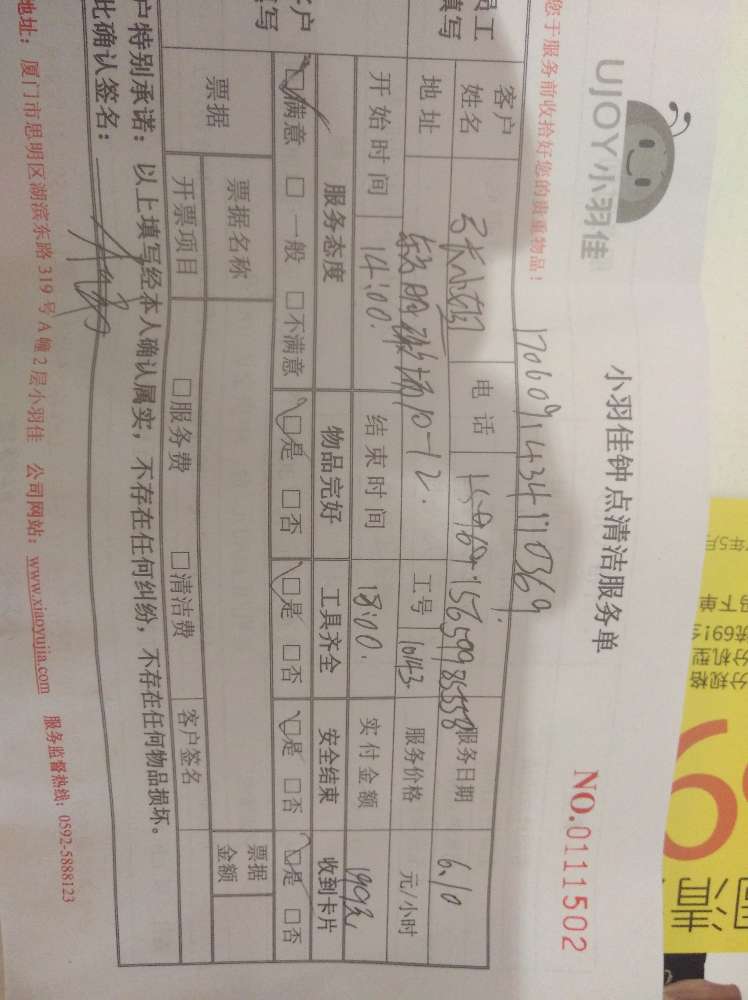 UJOY小羽佳
小羽佳钟点清洁服务单
NO.0111502
您于服务前收拾好您的贵重物品!
170609143411 0369
员工
填写
客户
姓名
电话
15659985558
服务日期
6.10
地址
10-12.
工号
10143
服务价格
元/小时
开始时间
14:00.
结束时间
18:00.
实付金额
客户
填写
服务态度
物品完好
工具齐全
安全结束
收到卡片
□满意 □一般 □不满意
□是 □否
□是 □否
□是 □否
□是 □否
票据
票据名称
票据
金额
开票项目
□服务费 □清洁费
客户签名
户特别承诺:以上填写经本人确认属实,不存在任何纠纷,不存在任何物品损坏。
此确认签名:
地址:厦门市思明区湖滨东路319号A幢2层小羽佳 公司网站:www.xiaoyujia.com 服务监督热线:0592-5888123
年5月
下单
691
分机型
分规格
清